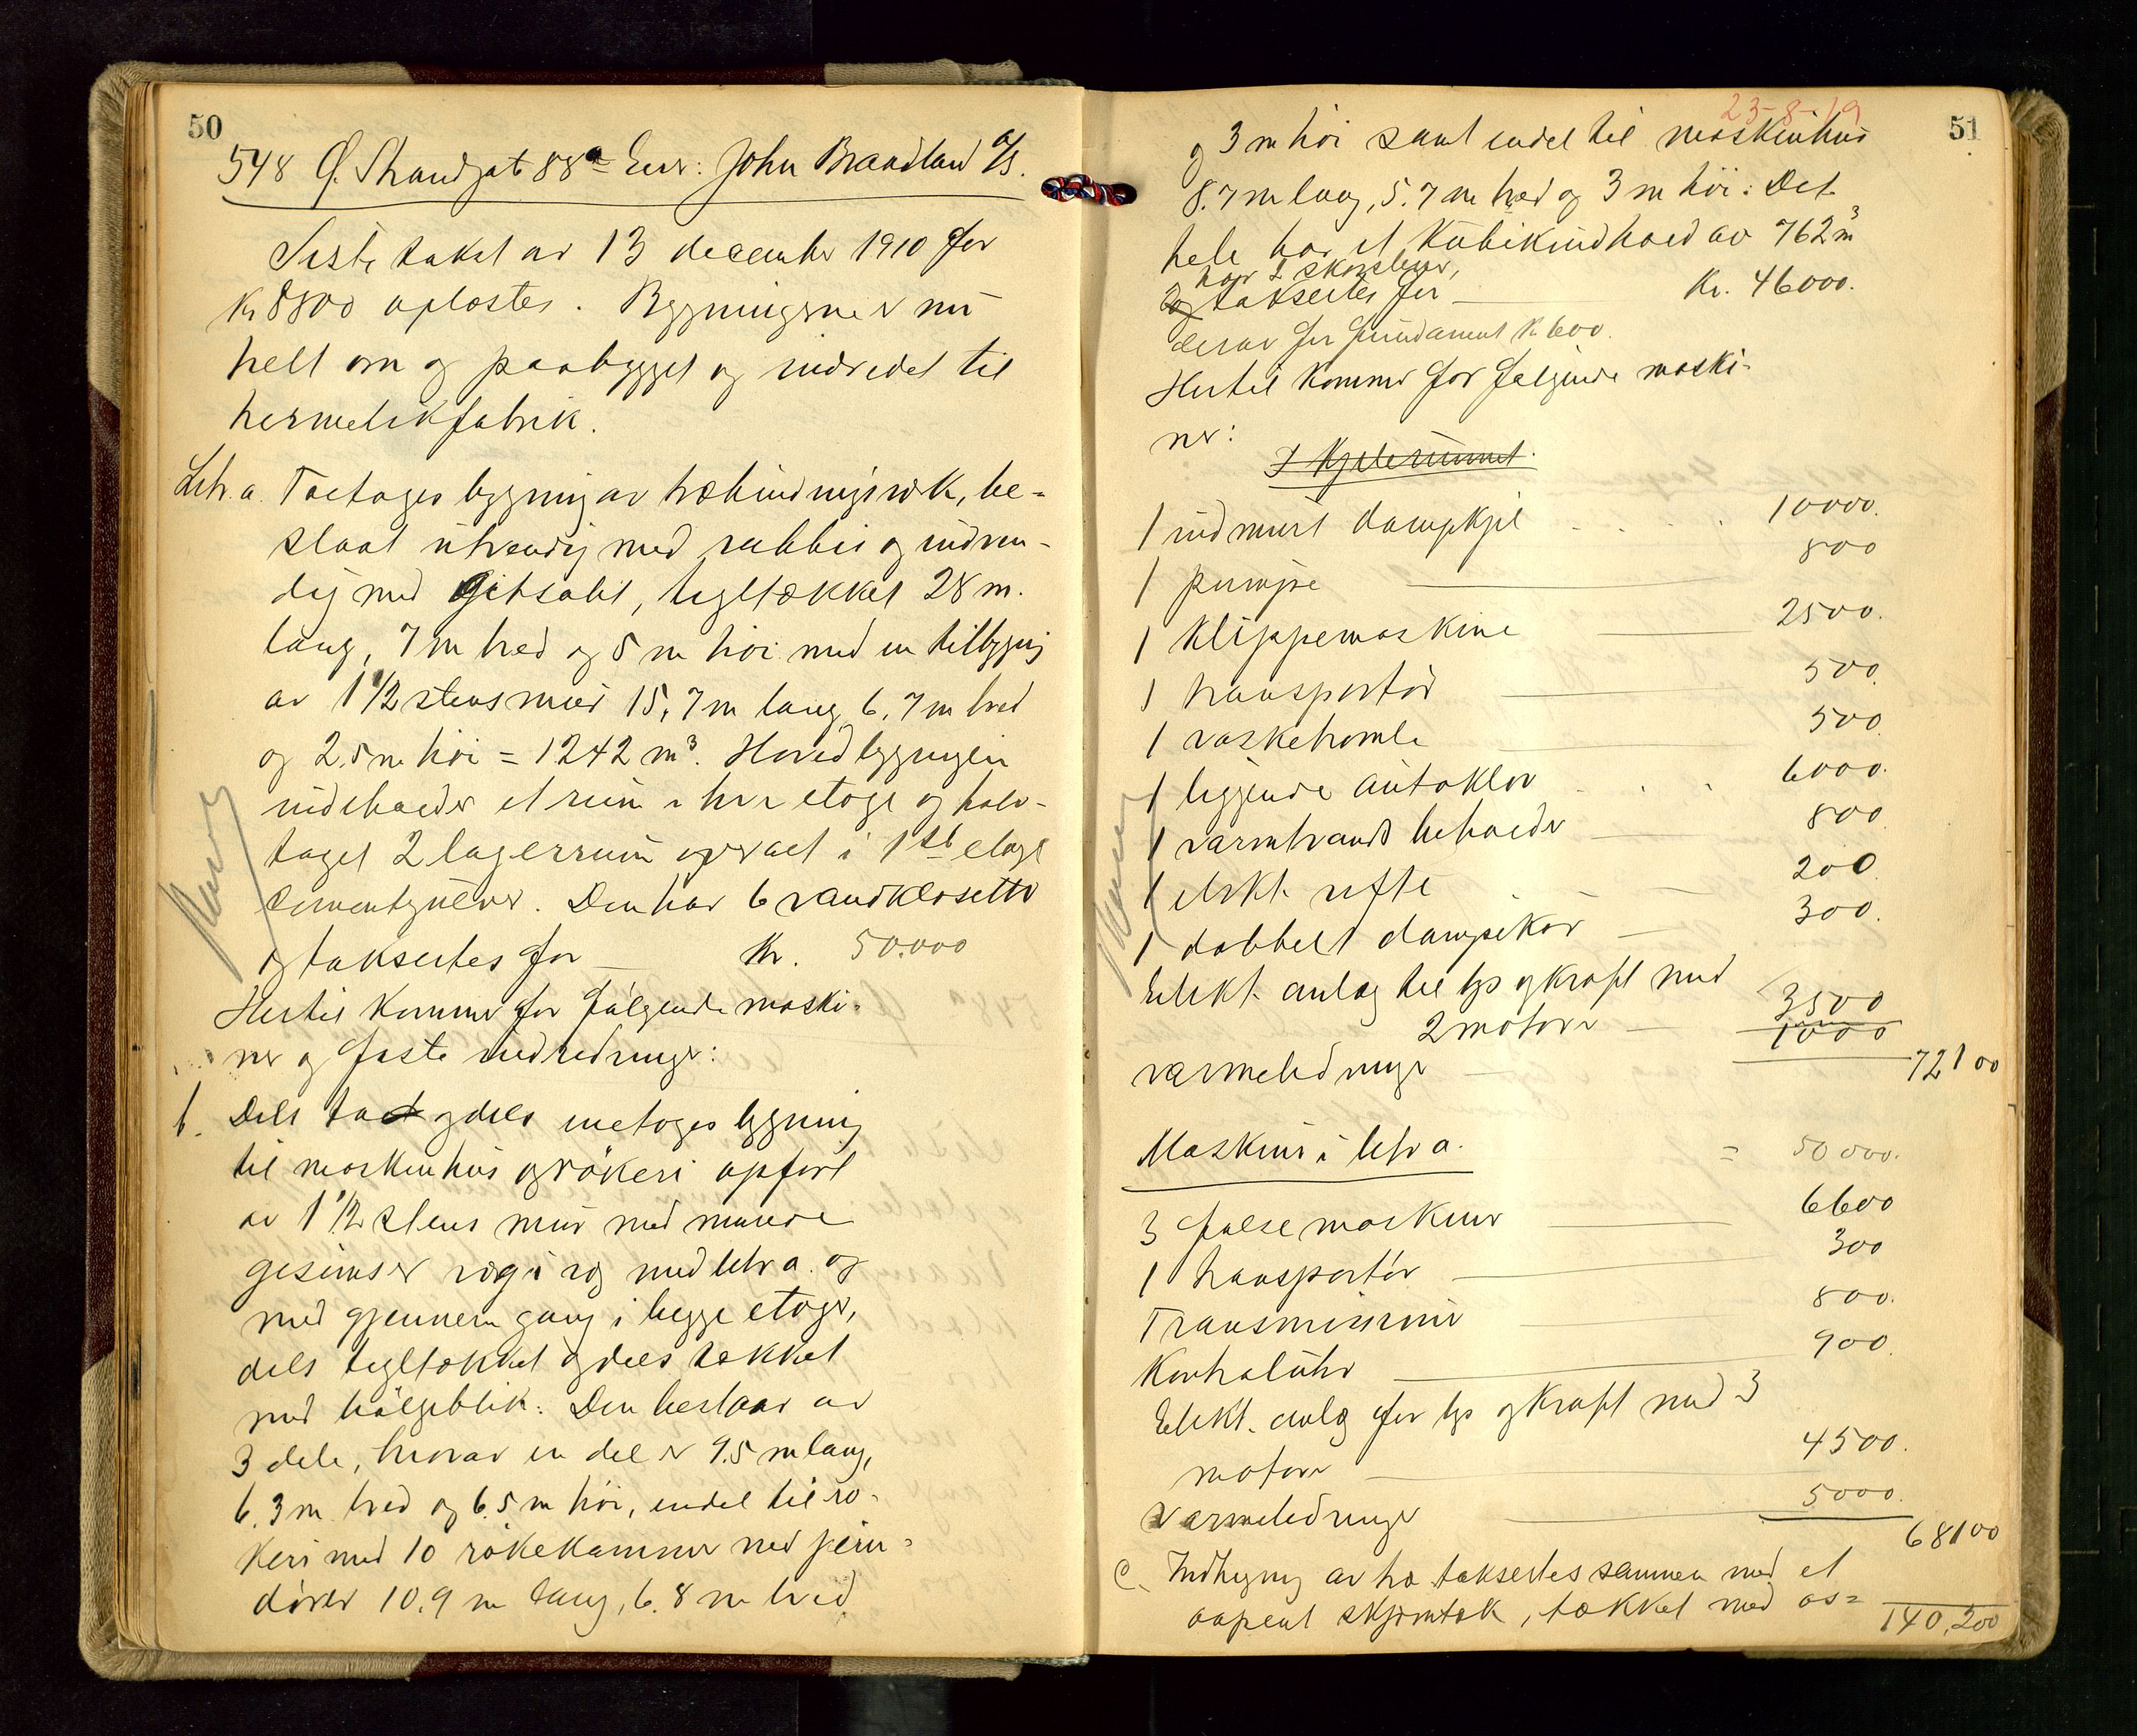 50
548 Ø. Strandgat 88a Eier: John Braadland A/S.
Siste takst av 13 december 1910 for
Kr 8800 oplæstes. Bygningerne er nu
helt om og paabygget og indredet til
hermetikfabrik.
Litr. a. Toetages bygning av træbindingsverk, be-
slaat utvendig med rabbis og indven-
dig med gibsolit, tegltækket 28 m.
lang, 7 m bred og 5 m høi med en tilbygning
av 1 1/2 stens mur 15,7 m lang, 6.7 m bred
og 2.5 m høi = 1242 m³. Hovedbygningen
indeholder et rum i hver etage og halv-
taget 2 lagerrum og vaat i 1ste etage
cementgulver. Den har 6 vandklosetter
og taksertes for Kr. 50.000
Hertil kommer for følgende maski-
ner og faste indredninger:
b. Dels to og dels enetages bygning
til maskinhus og røkeri opført
av 1 1/2 stens mur med murede
gesimser væg i væg med litr a. og
med gjennemgang i begge etager,
dels tegltækket og dels tækket
med bølgeblik. Den bestaar av
3 dele, hvorav en del er 9.5 m lang,
6.3 m bred og 6.5 m høi, endel til rø-
keri med 10 røkekammer med jern-
dører 10.9 m lang, 6.8 m bred
23-8-19
51
og 3 m høi samt endel til maskinhus
8.7 m lang, 5.7 m bred og 3 m høi. Det
hele har et kubikindhold av 762 m³
har 2 skorstener,
og taksertes for Kr. 46000.
derav for fundament kr 600.
Hertil kommer for følgende maski-
ner:
I Kjelerummet.
1 indmurt dampkjel 10000.
1 pumpe 800
1 klippemaskine 2500.
1 transportør 500.
1 vasketromle 500.
1 liggende autoklav 6000.
1 varmtvands beholder 800
1 elekt. vifte 200
1 dobbelt dampekar 300.
Elekt. anlæg til lys og kraft med
2 motorer 3500
varmeledninger 1000
72100
Maskiner i litr a. = 50000.
3 false maskiner 6600
1 transportør 300
Transmissioner 800.
Kontroluhr 900.
Elekt. anlæg for lys og kraft med 3
motorer 4500.
Varmeledninger 5000.
68100
c. Indhegning av træ taksertes sammen med et
aapent skjermtak, tækket med as=
140,200